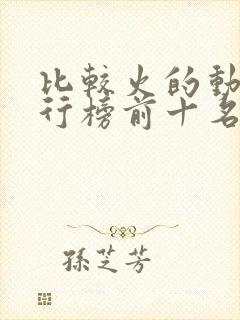 比較火的動
行榜前十名
孫芝芳